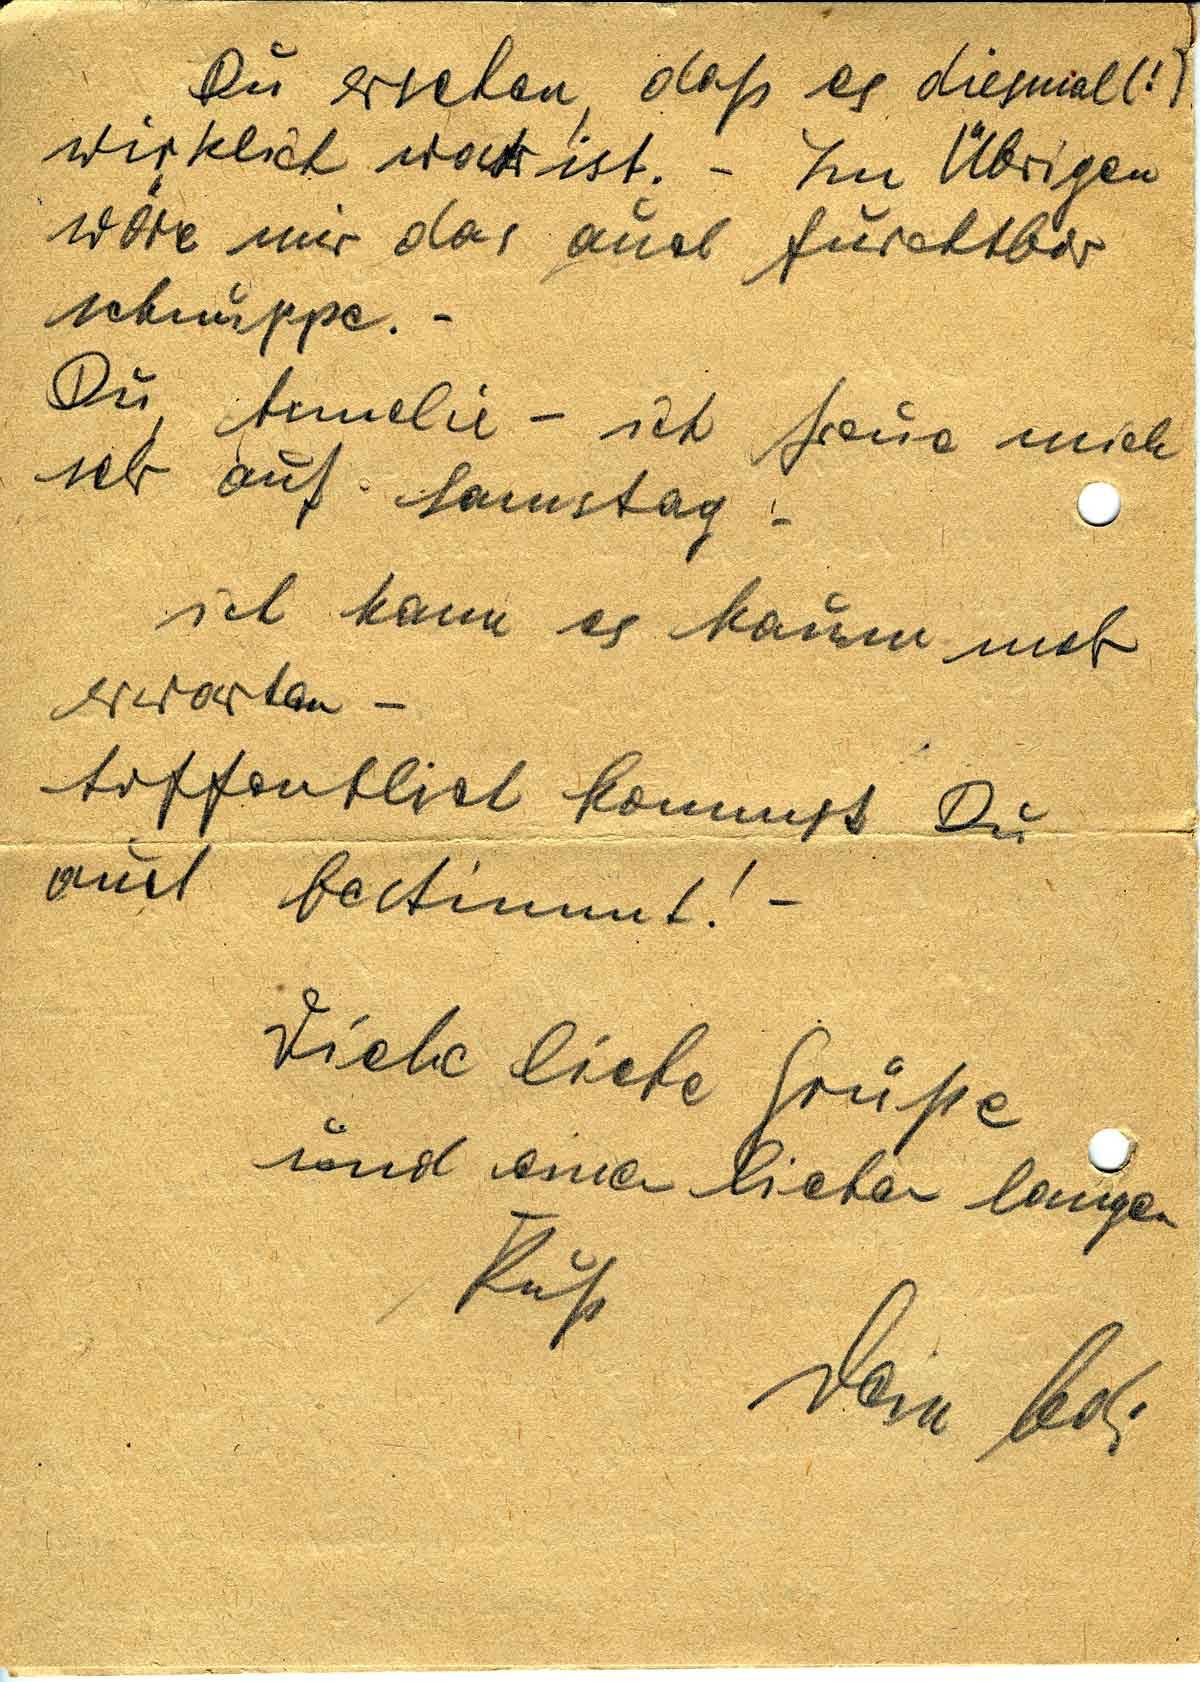 Du ersehen, daß es diesmal(!)
wirklich wahr ist. - Im Übrigen
wäre mir das auch furchtbar
schnuppe. -
Du, Annelie - ich freue mich
sehr auf Samstag. -
ich kann es kaum mehr
erwarten -
Hoffentlich kommst Du
auch bestimmt! -
Viele liebe Grüße
und einen lieben langen
Kuß
Dein